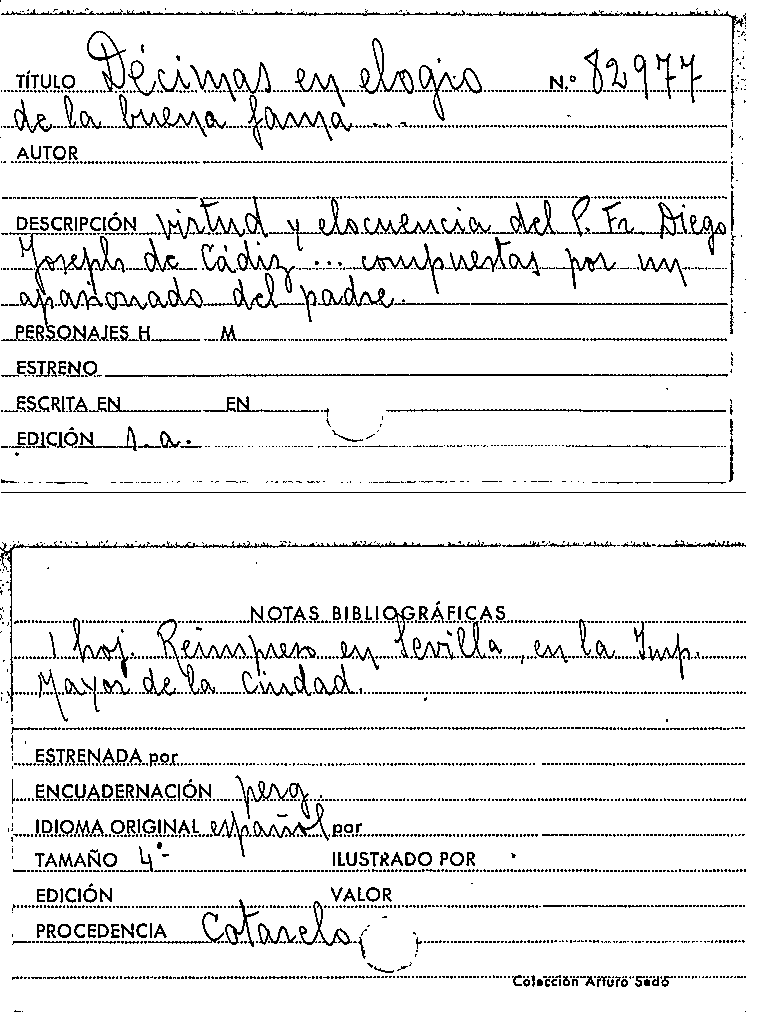 TÍTULO Décimas en elogio N.º 82977
de la buena fama ...
AUTOR
DESCRIPCIÓN virtud y elocuencia del P. Fr. Diego
Joseph de Cádiz ... compuestas por un
apasionado del padre.
PERSONAJES H M
ESTRENO
ESCRITA EN EN
EDICIÓN s.a.
NOTAS BIBLIOGRÁFICAS
1 hoj. Reimpreso en Sevilla, en la Imp.
Mayor de la Ciudad.
ESTRENADA por
ENCUADERNACIÓN perg.
IDIOMA ORIGINAL español por
TAMAÑO 4º-
ILUSTRADO POR
EDICIÓN VALOR
PROCEDENCIA Cotarelo
Colección Arturo Sedó